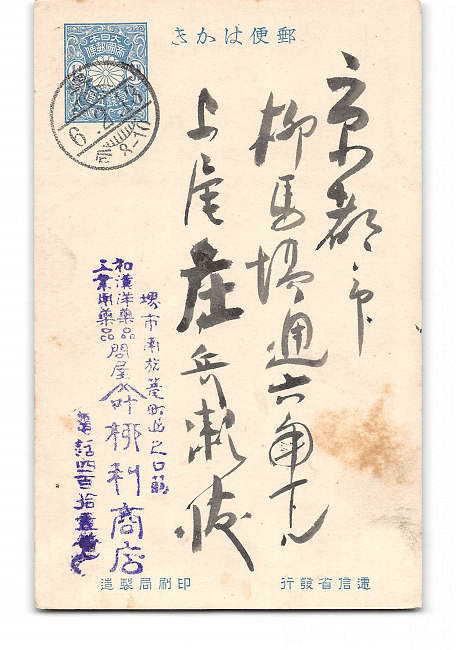 郵便はかき
大日本
帝國郵便
京都市
柳馬場通六角下ル
上尾庄兵衛殿
堺市南旅篭町
和漢洋薬品
工業用薬品
問屋
柳利商店
電話四百拾
逓信省發行
印刷局製造